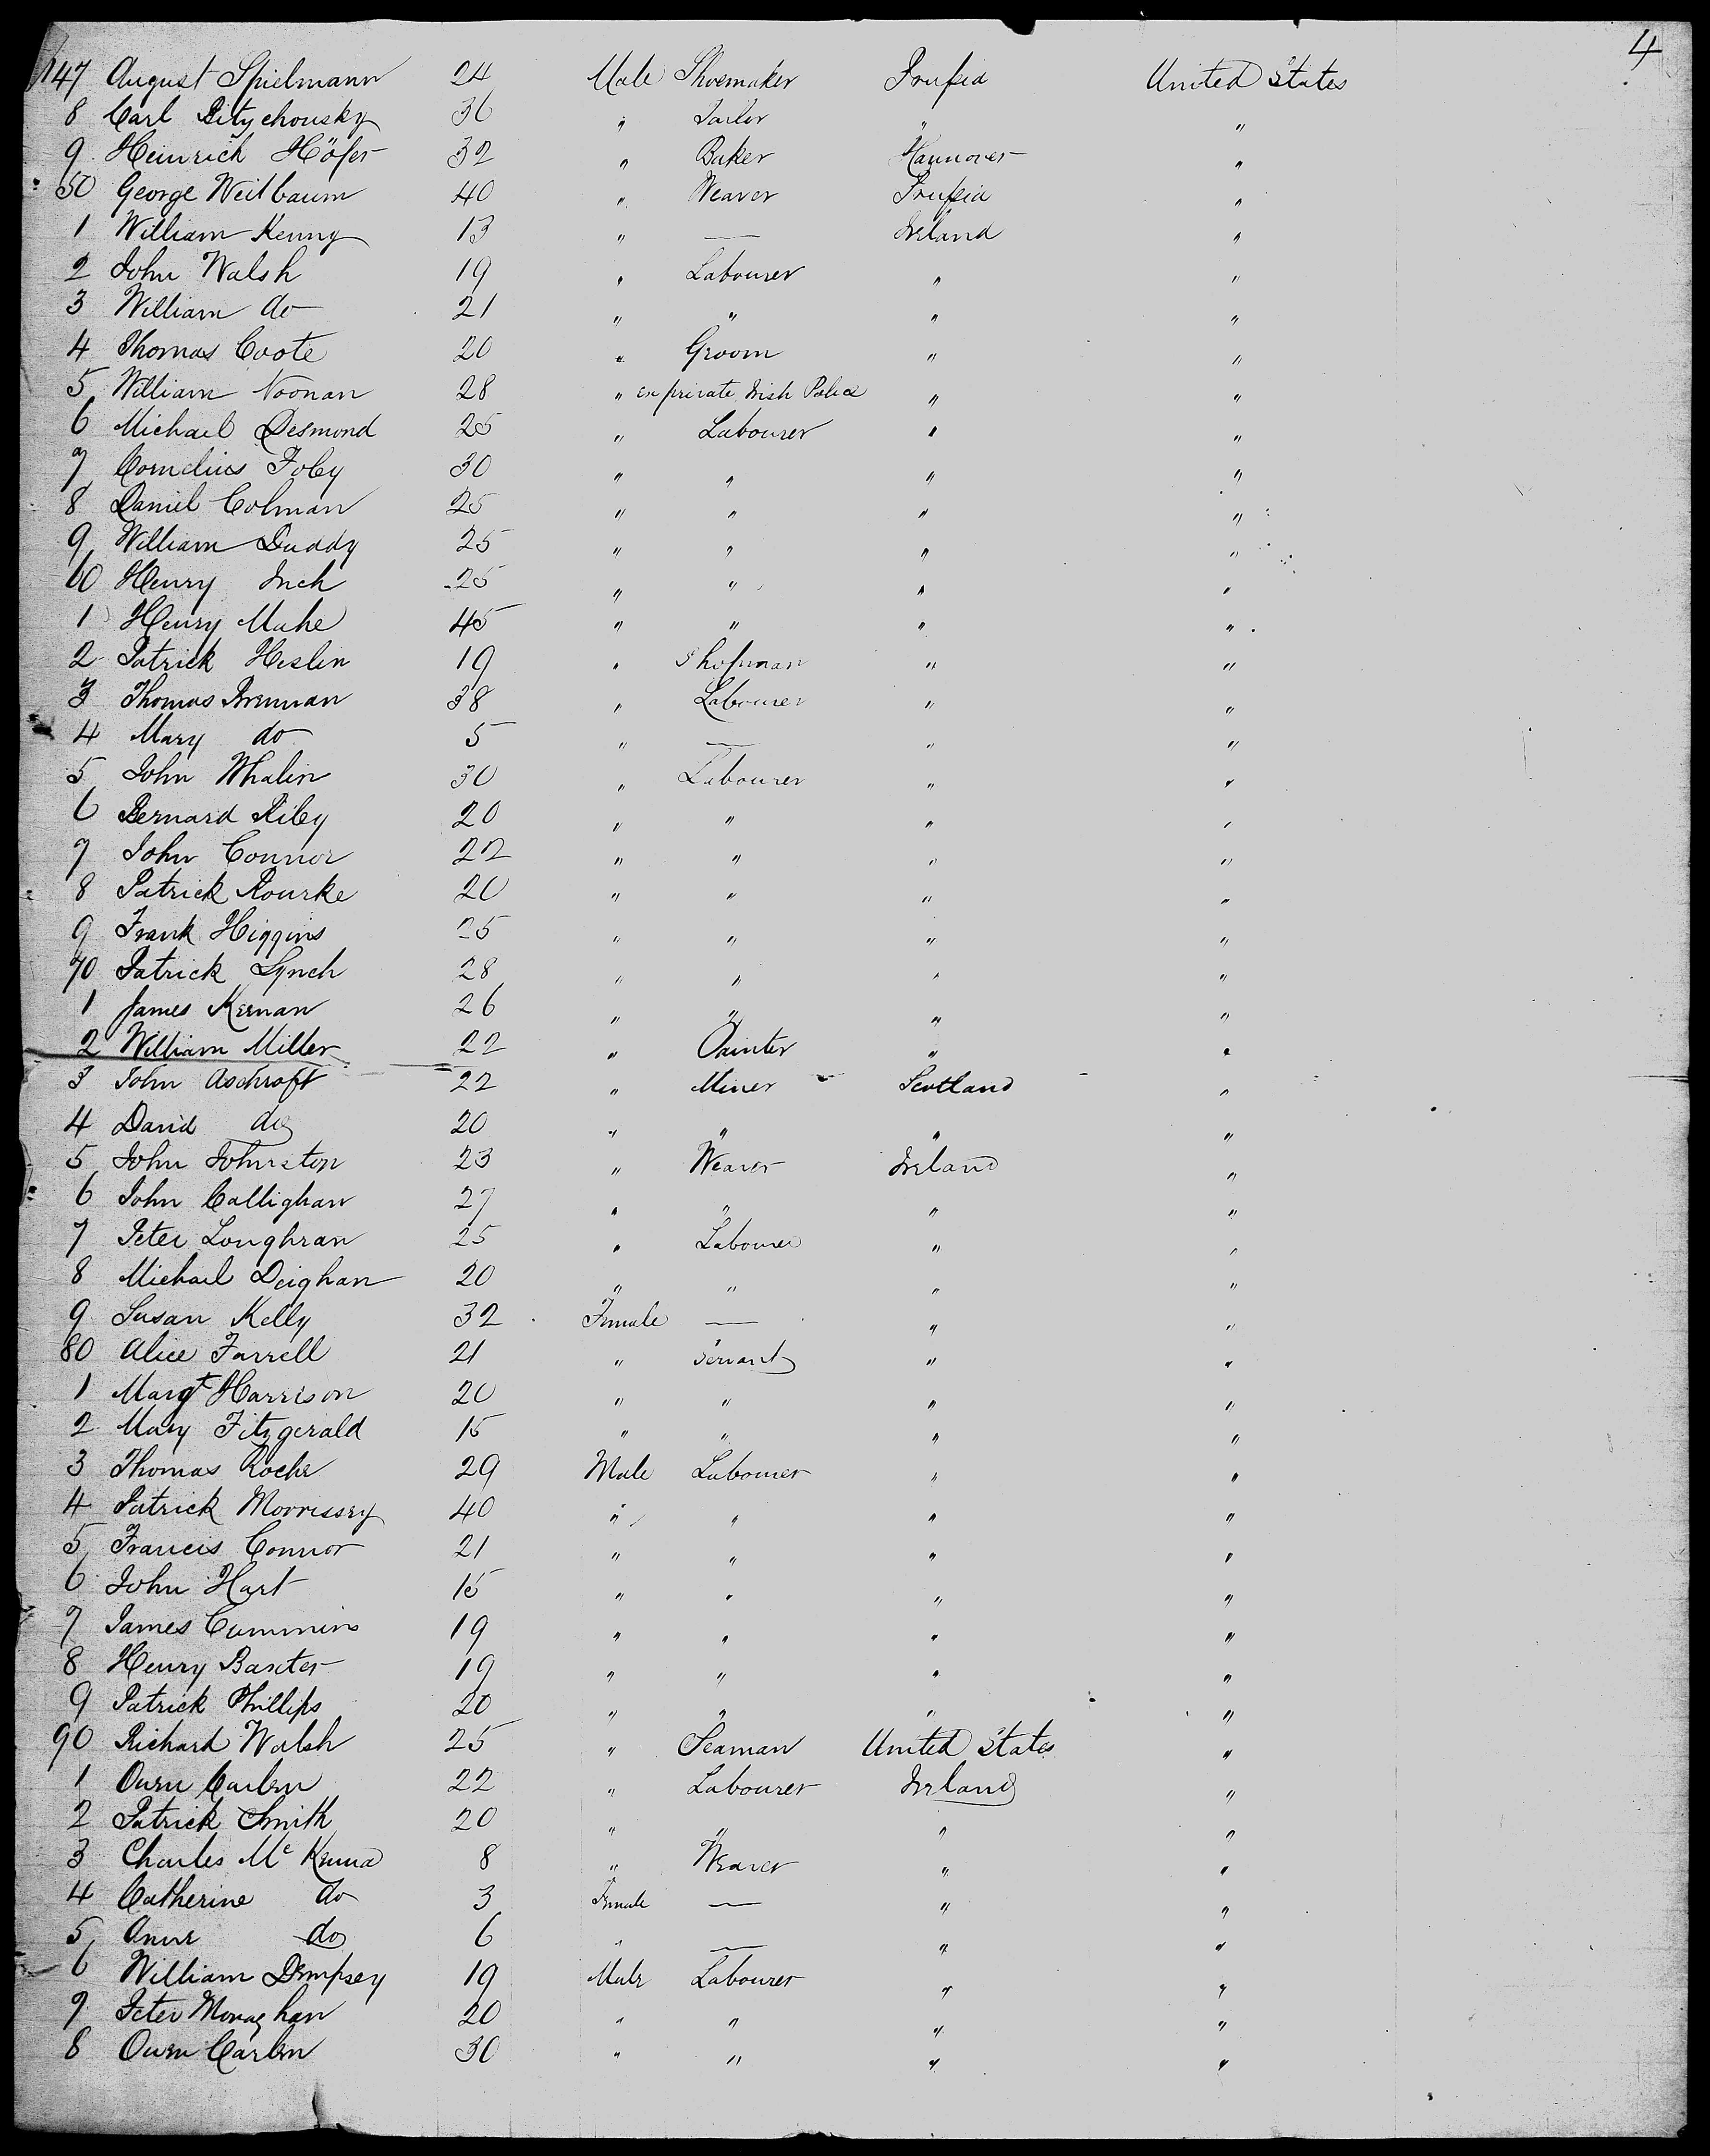 4
147 August Spielmann 24 Male Shoemaker Prussia United States
8 Carl 36 " Tailor " "
9 Heinrich Höfer 32 " Baker Hannover "
50 George Weilbaum 40 " Weaver Prussia "
1 William Kenny 13 " — Ireland "
2 John Walsh 19 " Labourer " "
3 William do 21 " " " "
4 Thomas Coote 20 " Groom " "
5 William Noonan 28 " ex private Irish Police " "
6 Michael Desmond 25 " Labourer " "
7 Cornelius Foley 30 " " " "
8 Daniel Colman 25 " " " "
9 William Duddy 25 " " " "
60 Henry Inch 25 " " " "
1 Henry Mahe 45 " " " "
2 Patrick Heslin 19 " Shopman " "
3 Thomas Brennan 38 " Labourer " "
4 Mary do 5 " — " "
5 John Whalin 30 " Labourer " "
6 Bernard Riley 20 " " " "
7 John Connor 22 " " " "
8 Patrick Rourke 20 " " " "
9 Frank Higgins 25 " " " "
70 Patrick Lynch 28 " " " "
1 James Kernan 26 " " " "
2 William Miller 22 " Painter " "
3 John Aschroft 22 " Miner Scotland "
4 David do 20 " " " "
5 John Johnston 23 " Weaver Ireland "
6 John Callighan 27 " " " "
7 Peter Loughran 25 " Labourer " "
8 Michael Deighan 20 " " " "
9 Susan Kelly 32 Female — " "
80 Alice Farrell 21 " Servant " "
1 Margt Harrison 20 " " " "
2 Mary Fitzgerald 15 " " " "
3 Thomas Roche 29 Male Labourer " "
4 Patrick Morrissey 40 " " " "
5 Francis Connor 21 " " " "
6 John Hart 15 " " " "
7 James Cummins 19 " " " "
8 Henry Baxter 19 " " " "
9 Patrick Phillips 20 " " " "
90 Richard Walsh 25 " Seaman United States "
1 Owen Carlen 22 " Labourer Ireland "
2 Patrick Smith 20 " " " "
3 Charles Mc Kenna 8 " Weaver " "
4 Catherine do 3 Female — " "
5 Anne do 6 " — " "
6 William Dempsey 19 Male Labourer " "
7 Peter Monaghan 20 " " " "
8 Owen Carlen 30 " " " "